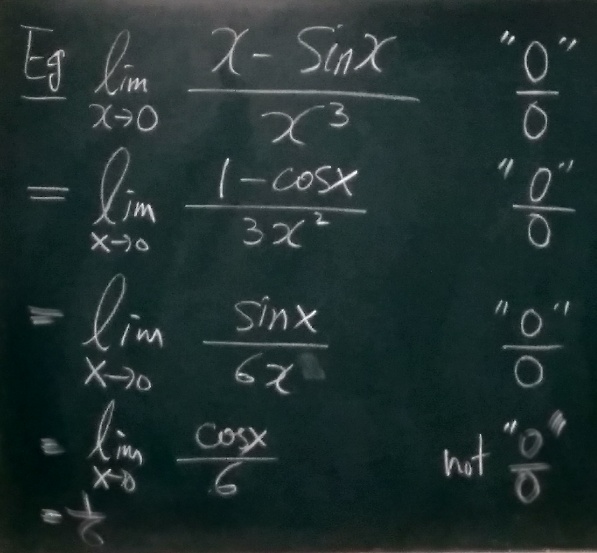 Eg lim x→0 x - Sinx / x³ "0/0"
= lim x→0 1 - cosx / 3x² "0/0"
= lim x→0 sinx / 6x "0/0"
= lim x→0 cosx / 6 not "0/0"
= 1/6